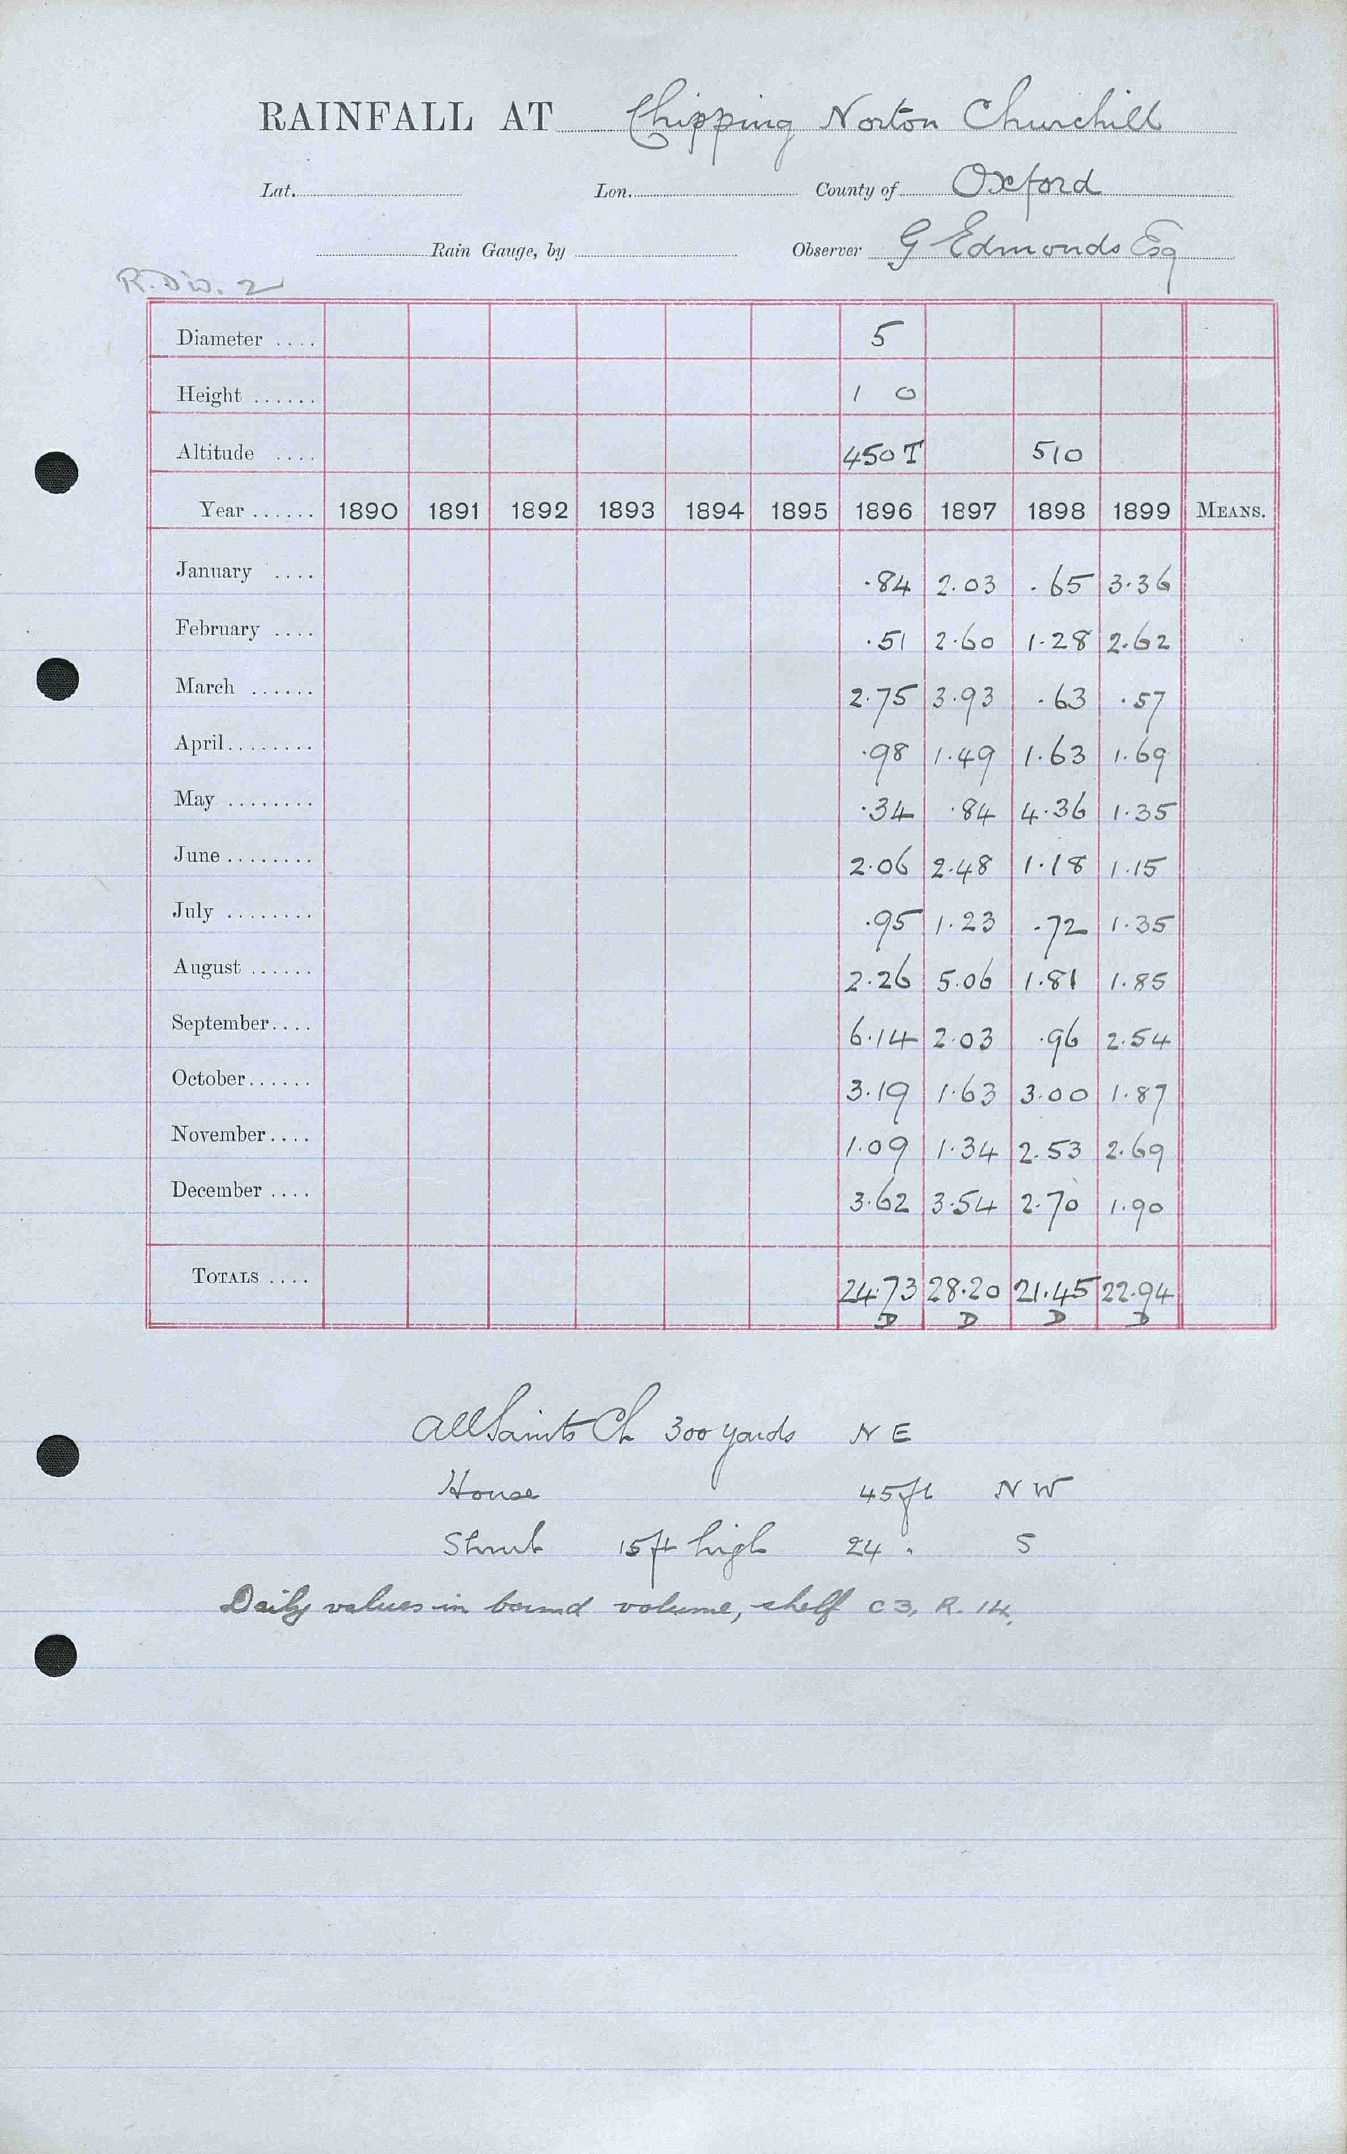 RAINFALL AT Chipping Norton Churchill
Lat. Lon. County of Oxford
Rain Gauge, by Observer G Edmonds Esq
R. Div. 2
Diameter .... 5
Height ...... 1 0
Altitude .... 450 T 510
Year ...... 1890 1891 1892 1893 1894 1895 1896 1897 1898 1899 MEANS.
January .... .84 2.03 .65 3.36
February .... .51 2.60 1.28 2.62
March ...... 2.75 3.93 .63 .57
April........ .98 1.49 1.63 1.69
May ........ .34 .84 4.36 1.35
June........ 2.06 2.48 1.18 1.15
July ........ .95 1.23 .72 1.35
August ...... 2.26 5.06 1.81 1.85
September.... 6.14 2.03 .96 2.54
October...... 3.19 1.63 3.00 1.87
November.... 1.09 1.34 2.53 2.69
December .... 3.62 3.54 2.70 1.90
TOTALS .... 24.73 28.20 21.45 22.94
D D D D
All Saints Ch 300 yards N E
House 45ft N W
Shrub 15ft high 24 " S
Daily values in bound volume, shelf C3, R. 14.